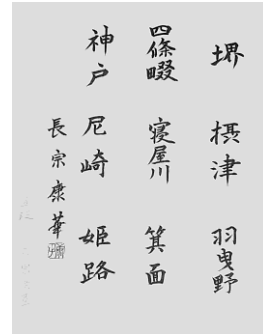 堺 摂津 羽曳野
四條畷 寝屋川 箕面
神戸 尼崎 姫路
長宗康華